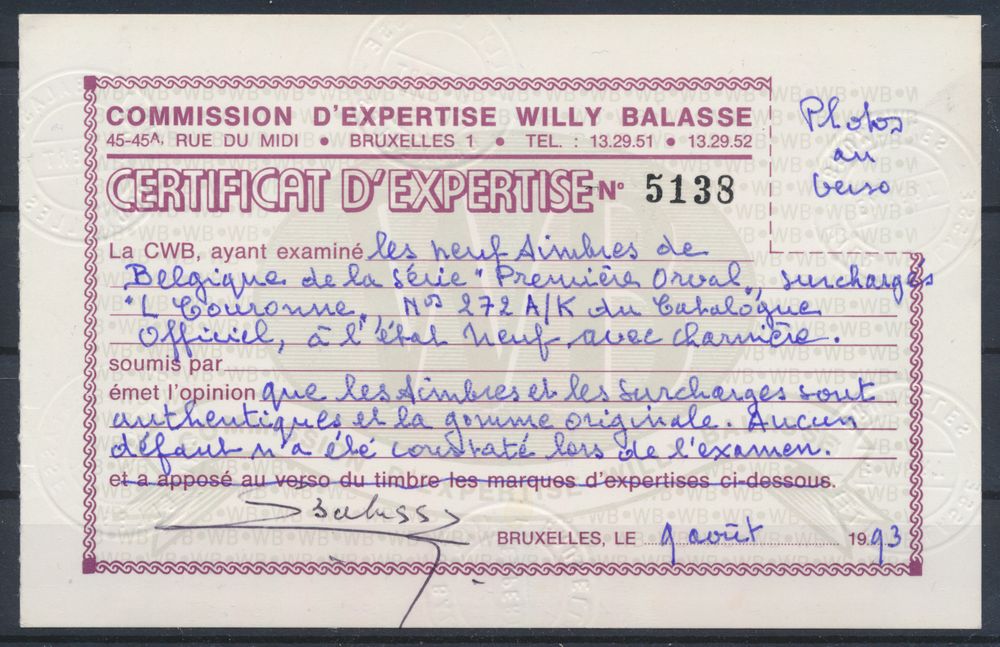 COMMISSION D'EXPERTISE WILLY BALASSE
45-45A, RUE DU MIDI • BRUXELLES 1 • TEL. : 13.29.51 • 13.29.52
CERTIFICAT D'EXPERTISE N° 5138
Photos
au
verso
La CWB, ayant examiné les neuf timbres de
Belgique de la série "Première Orval", surchargés
"L Couronne", Nos 272 A/K du Catalogue
Officiel, à l'état neuf avec charnière.
soumis par
émet l'opinion que les timbres et les surcharges sont
authentiques et la gomme originale. Aucun
défaut n'a été constaté lors de l'examen.
et a apposé au verso du timbre les marques d'expertises ci-dessous.
Balasse
BRUXELLES, LE 9 août 1993